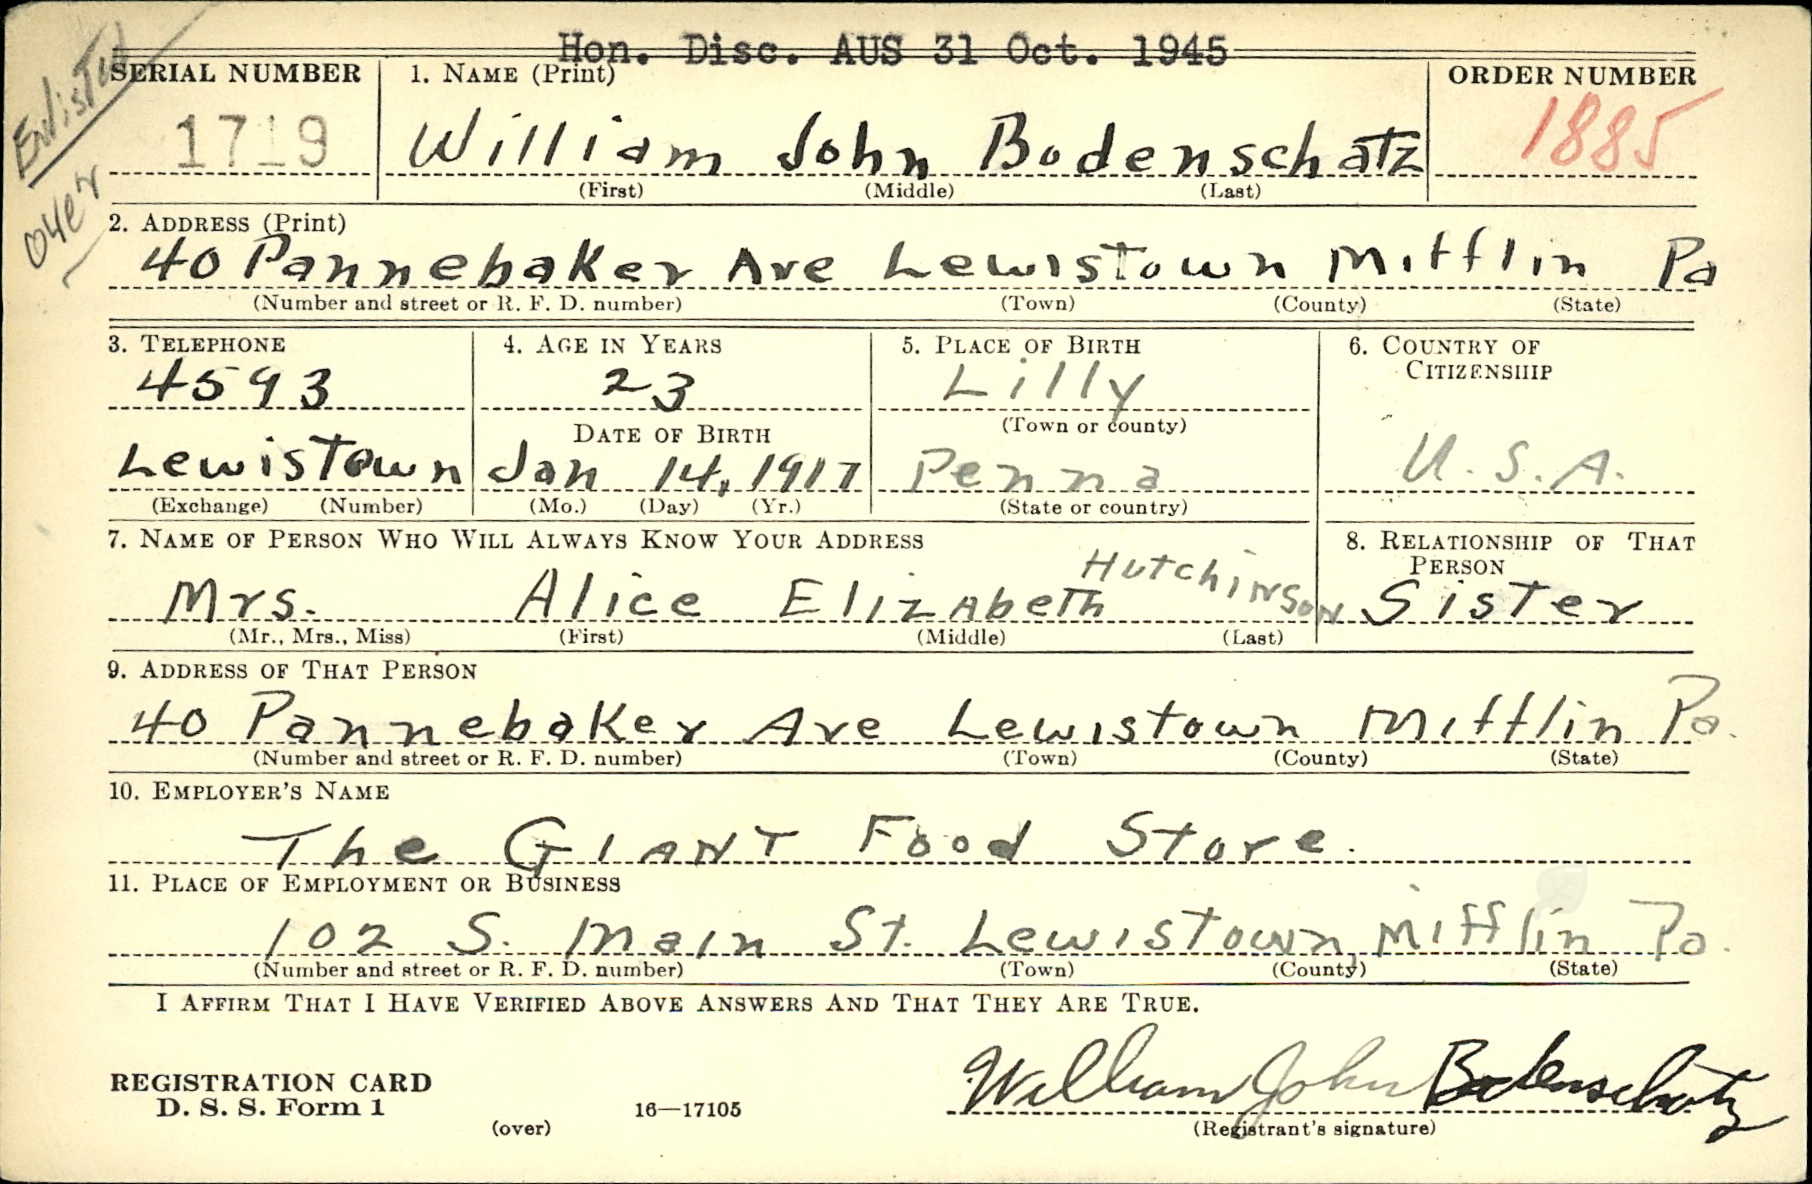 Hon. Disc. AUS 31 Oct. 1945
Enlisted
over
SERIAL NUMBER 1. NAME (Print) ORDER NUMBER
1719 William John Bodenschatz 1885
(First) (Middle) (Last)
2. ADDRESS (Print)
40 Pannebaker Ave Lewistown Mifflin Pa
(Number and street or R. F. D. number) (Town) (County) (State)
3. TELEPHONE 4. AGE IN YEARS 5. PLACE OF BIRTH 6. COUNTRY OF
CITIZENSHIP
4593 23 Lilly
DATE OF BIRTH (Town or county)
Lewistown Jan 14, 1917 Penna U.S.A.
(Exchange) (Number) (Mo.) (Day) (Yr.) (State or country)
7. NAME OF PERSON WHO WILL ALWAYS KNOW YOUR ADDRESS 8. RELATIONSHIP OF THAT
PERSON
Mrs. Alice Elizabeth Hutchinson Sister
(Mr., Mrs., Miss) (First) (Middle) (Last)
9. ADDRESS OF THAT PERSON
40 Pannebaker Ave Lewistown Mifflin Pa.
(Number and street or R. F. D. number) (Town) (County) (State)
10. EMPLOYER'S NAME
The GIANT Food Store.
11. PLACE OF EMPLOYMENT OR BUSINESS
102 S. Main St. Lewistown, Mifflin Pa.
(Number and street or R. F. D. number) (Town) (County) (State)
I AFFIRM THAT I HAVE VERIFIED ABOVE ANSWERS AND THAT THEY ARE TRUE.
William John Bodenschatz
REGISTRATION CARD
D. S. S. Form 1 16—17105
(over) (Registrant's signature)